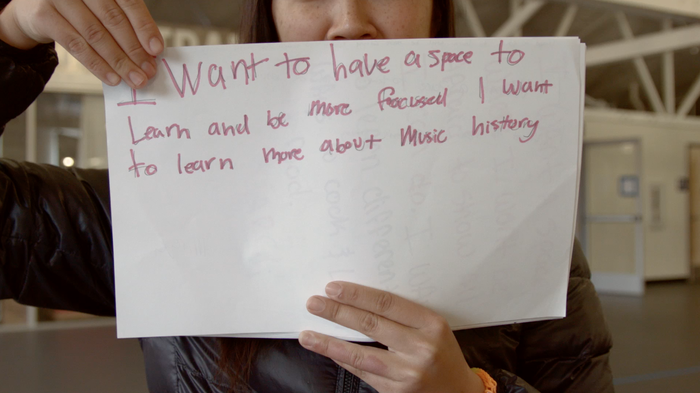 I Want to have a space to
Learn and be more focused I want
to learn more about Music history